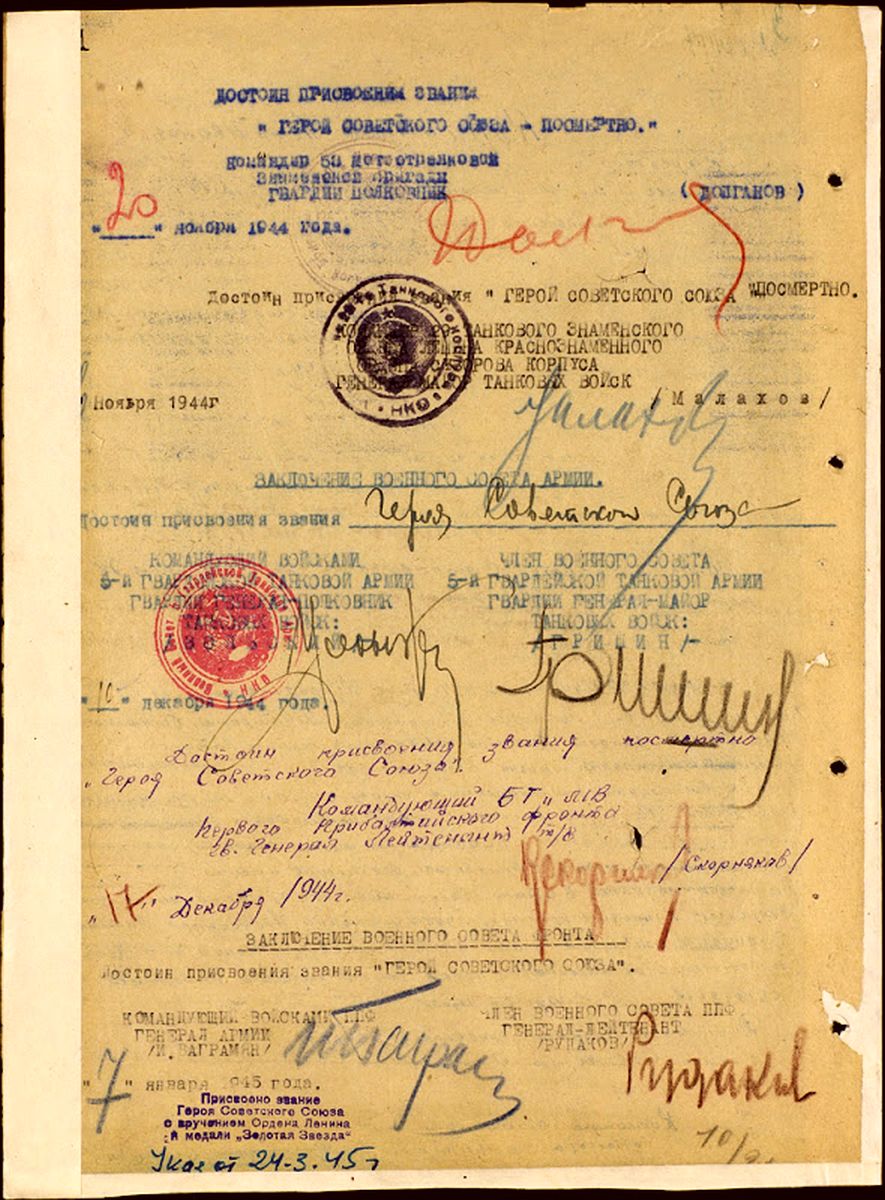 ДОСТОИН ПРИСВОЕНИЯ ЗВАНИЯ
"ГЕРОЙ СОВЕТСКОГО СОЮЗА - ПОСМЕРТНО."
КОМАНДИР 53 МОТОСТРЕЛКОВОЙ
ЗНАМЕНСКОЙ БРИГАДЫ
ГВАРДИИ ПОЛКОВНИК
(ДОЛГАНОВ)
"20" ноября 1944 года.
Достоин присвоения звания "ГЕРОЙ СОВЕТСКОГО СОЮЗА" ПОСМЕРТНО.
КОМАНДИР 29 ТАНКОВОГО ЗНАМЕНСКОГО
ОРДЕНА ЛЕНИНА КРАСНОЗНАМЕННОГО
ОРДЕНА СУВОРОВА КОРПУСА
ГЕНЕРАЛ-МАЙОР ТАНКОВЫХ ВОЙСК
Ноября 1944г
/Малахов/
Малахов
НКО
ЗАКЛЮЧЕНИЕ ВОЕННОГО СОВЕТА АРМИИ.
Достоин присвоения звания Героя Советского Союза
КОМАНДУЮЩИЙ ВОЙСКАМИ
5-й ГВАРДЕЙСКОЙ ТАНКОВОЙ АРМИИ
ГВАРДИИ ГЕНЕРАЛ-ПОЛКОВНИК
ТАНКОВЫХ ВОЙСК:
ЧЛЕН ВОЕННОГО СОВЕТА
5-й ГВАРДЕЙСКОЙ ТАНКОВОЙ АРМИИ
ГВАРДИИ ГЕНЕРАЛ-МАЙОР
ТАНКОВЫХ ВОЙСК:
/ГРИШИН/-
"10" декабря 1944 года.
Достоин присвоения звания посмертно
"Героя Советского Союза".
Командующий БТ и МВ
Первого Прибалтийского фронта
гв. Генерал Лейтенант т/в
/Скорняков/
"17" Декабря 1944г.
ЗАКЛЮЧЕНИЕ ВОЕННОГО СОВЕТА ФРОНТА
Достоин присвоения звания "ГЕРОЙ СОВЕТСКОГО СОЮЗА".
КОМАНДУЮЩИЙ ВОЙСКАМИ ППФ
ГЕНЕРАЛ АРМИИ
/И. БАГРАМЯН/
ЧЛЕН ВОЕННОГО СОВЕТА ППФ
ГЕНЕРАЛ-ЛЕЙТЕНАНТ
/РУДАКОВ/
Рудаков
"7" января 1945 года.
Присвоено звание
Героя Советского Союза
с вручением Ордена Ленина
и медали „Золотая Звезда"
Указ от 24-3.45г